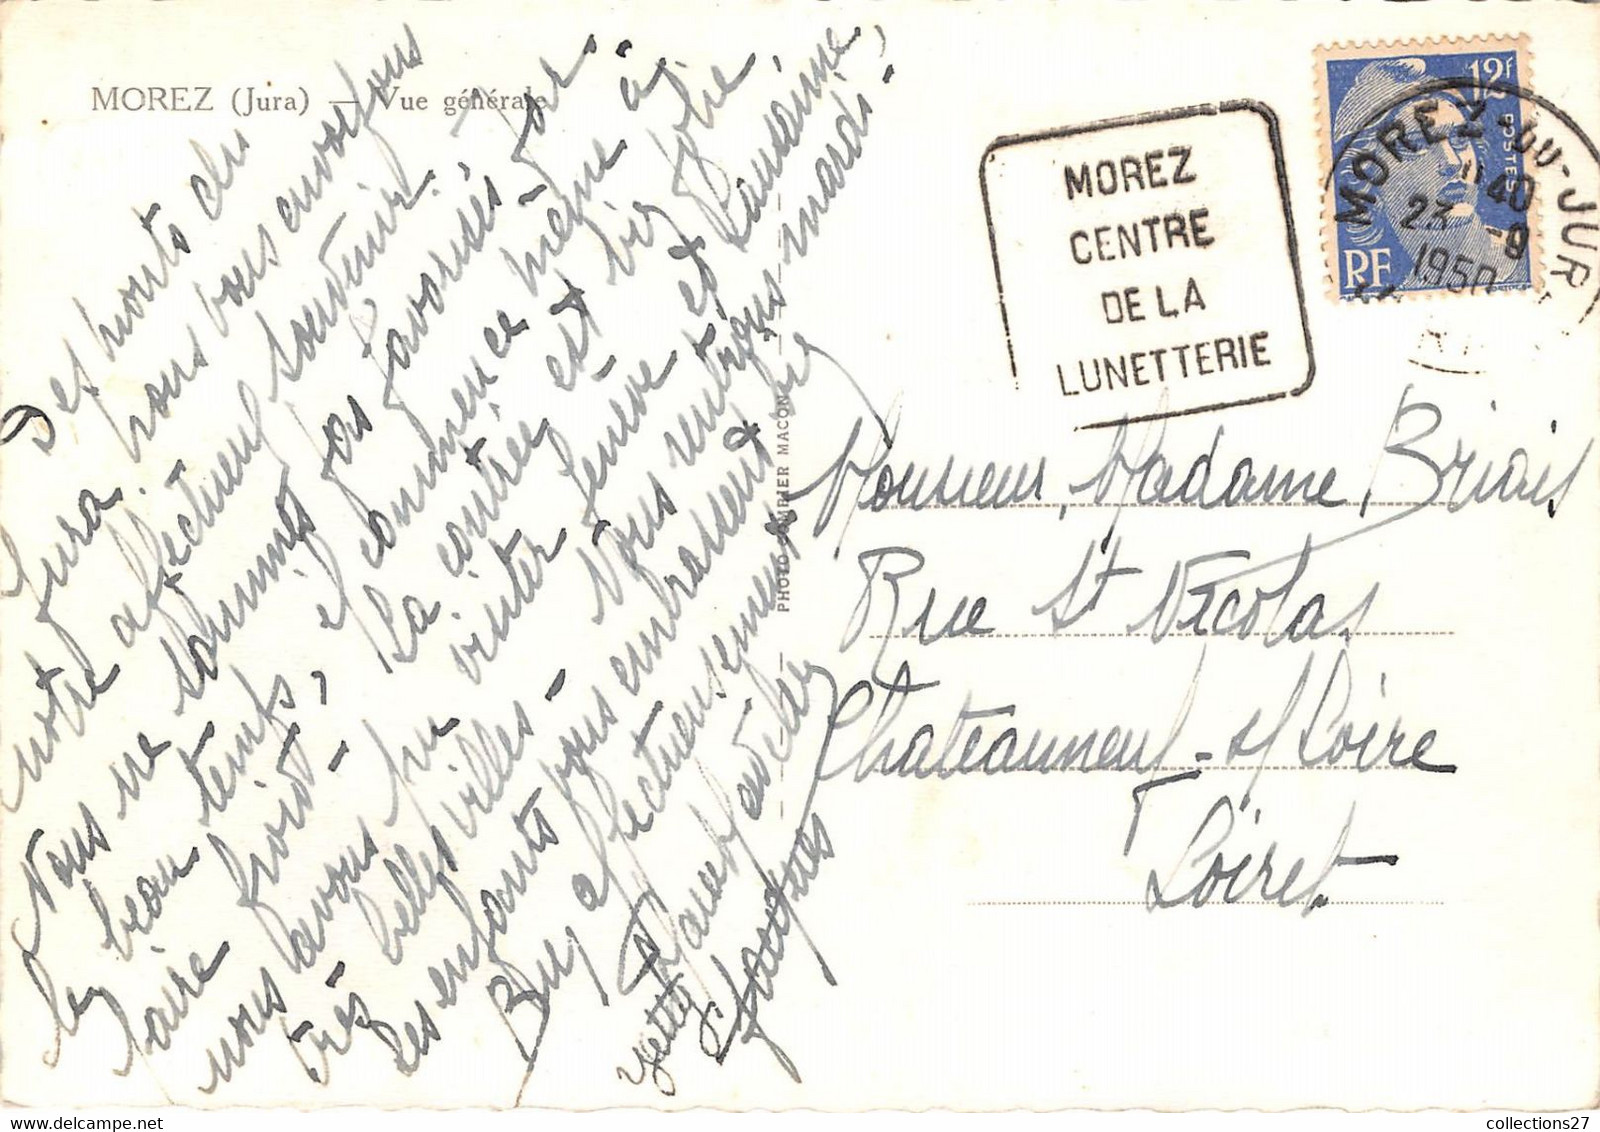 MOREZ (Jura) — Vue générale
Des monts du
Jura, nous vous envoyons
notre affectueux souvenir -
Nous ne sommes pas favorisés par
le beau temps, il commence même à
faire froid - La contrée est très jolie,
nous avons pu visiter Genève et Lausanne,
très belles villes - Nous rentrons mardi -
Les enfants vous embrassent
Bien affectueusement
Yette
Jacques
PHOTO COMBIER MACON
MOREZ
CENTRE
DE LA
LUNETTERIE
12F
POSTES
RF
MOREZ-DU-JURA
11 40
23 -9
1950
Monsieur, Madame, Briais
Rue St Nicolas
Chateauneuf-s/Loire
Loiret
collections27